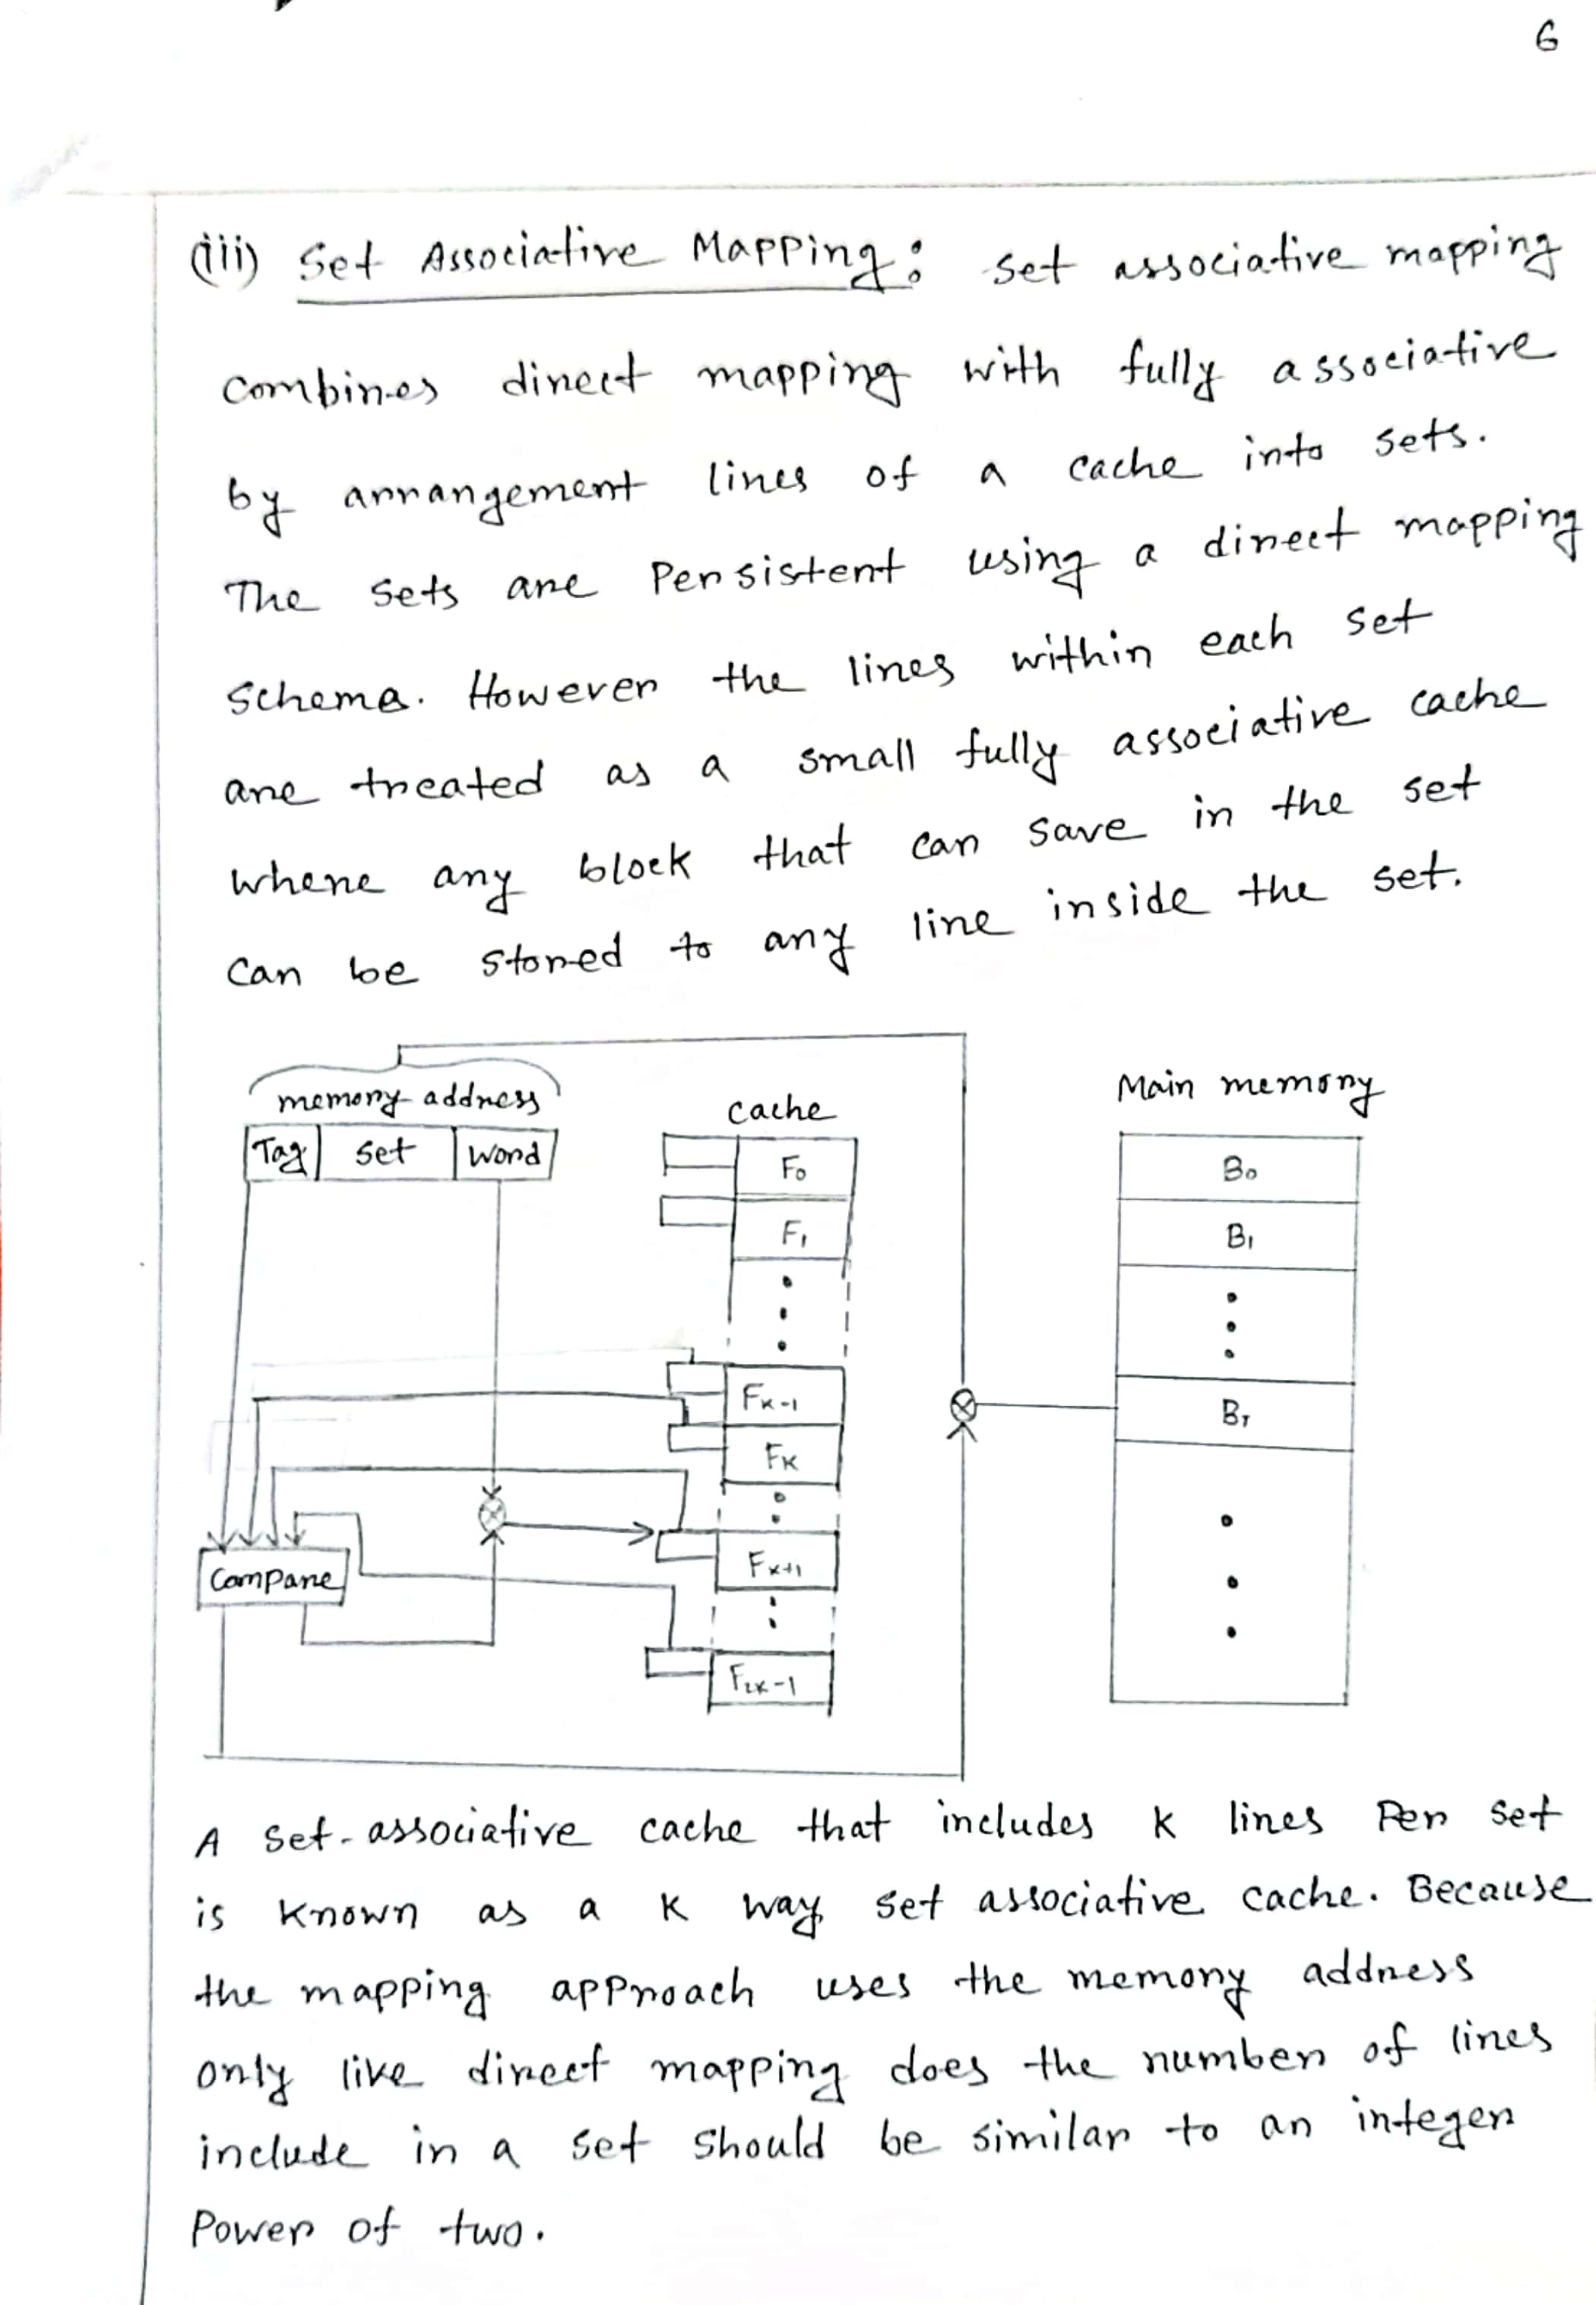 6
(iii) Set Associative Mapping: set associative mapping
combines direct mapping with fully associative
by arrangement lines of a cache into sets.
The sets are Persistent using a direct mapping
schema. However the lines within each set
are treated as a small fully associative cache
where any block that can save in the set
can be stored to any line inside the set.
memory address
Tag set word
cache
Main memory
F₀
F₁
Fₖ₋₁
Fₖ
Fₖ₊₁
F₂ₖ₋₁
B₀
B₁
B₇
Compare
A set-associative cache that includes K lines Per set
is known as a K way set associative cache. Because
the mapping approach uses the memory address
only like direct mapping does the number of lines
include in a set should be similar to an integer
Power of two.